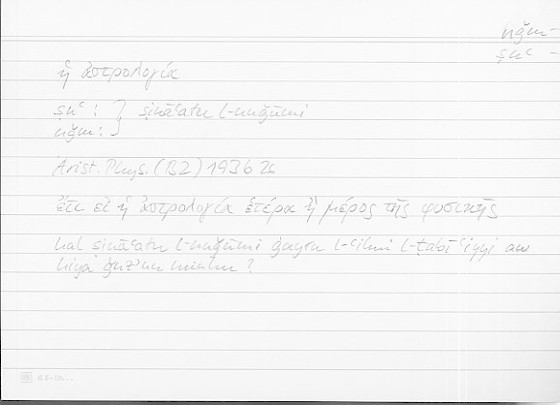 nǧm –
ṣnʿ –
ἡ ἀστρολογία
ṣnʿ : } ṣināʿatu l-nuǧūmi
nǧm : }
Arist. Phys. (B2) 193b26
ἔτι εἰ ἡ ἀστρολογία ἑτέρα ἢ μέρος τῆς φυσικῆς
hal ṣināʿatu l-nuǧūmi ġayru l-ʿilmi l-ṭabīʿiyyi aw
hiya ǧuzʾun minhu ?